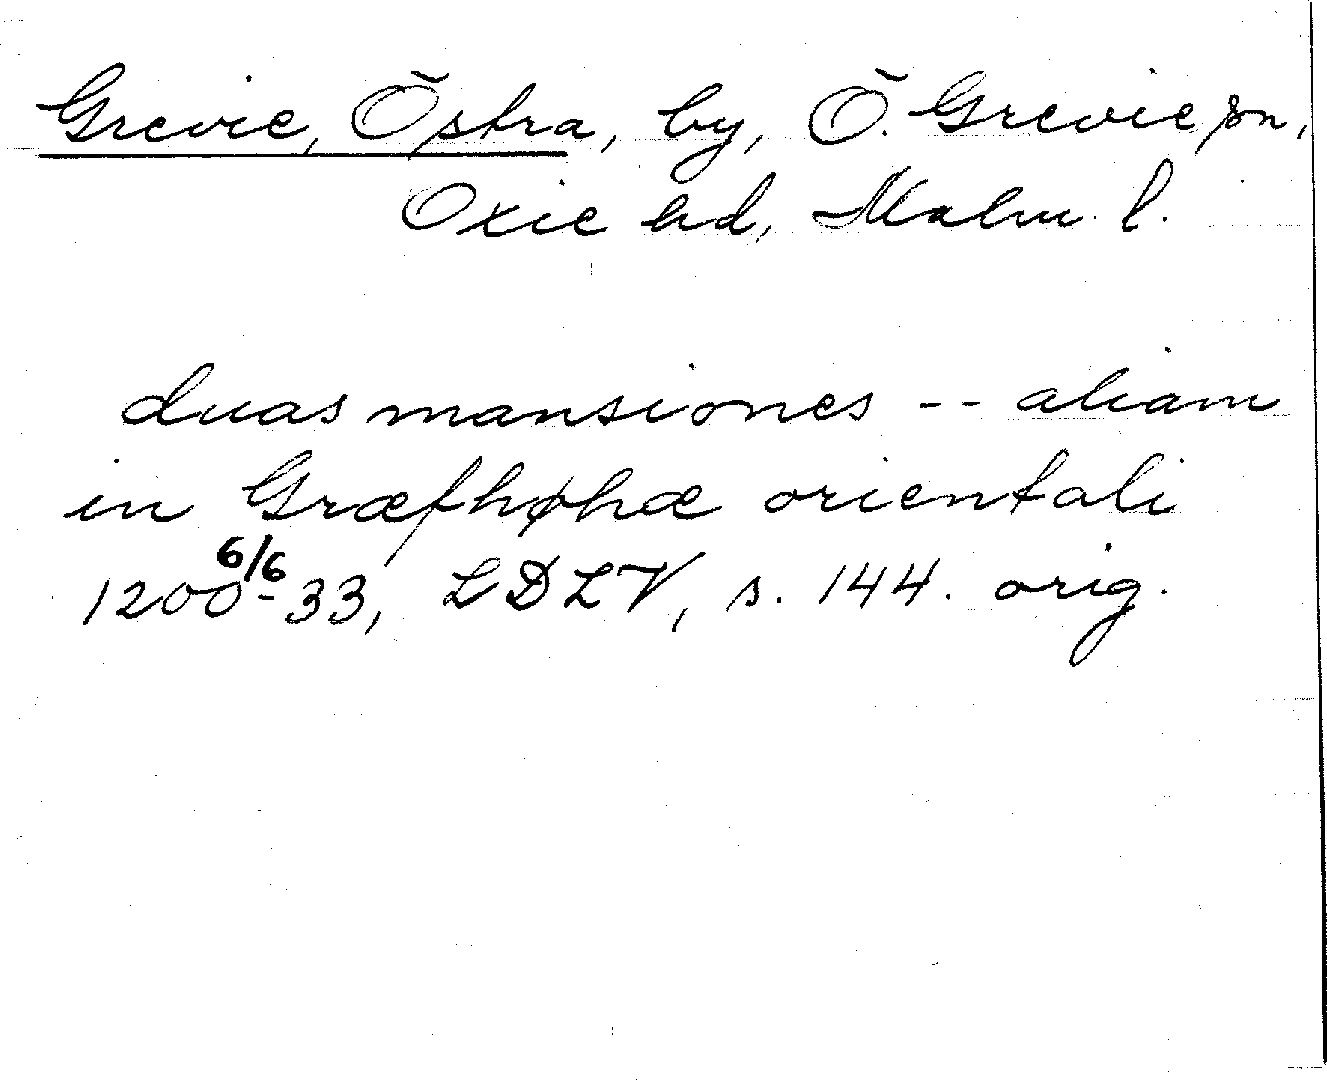 Grevie, Östra, by, Ö. Grevie sn,
Oxie hd, Malm. l.
duas mansiones -- aliam
in Græfhøhæ orientali
1200 6/6 -33, LDLV, s. 144. orig.